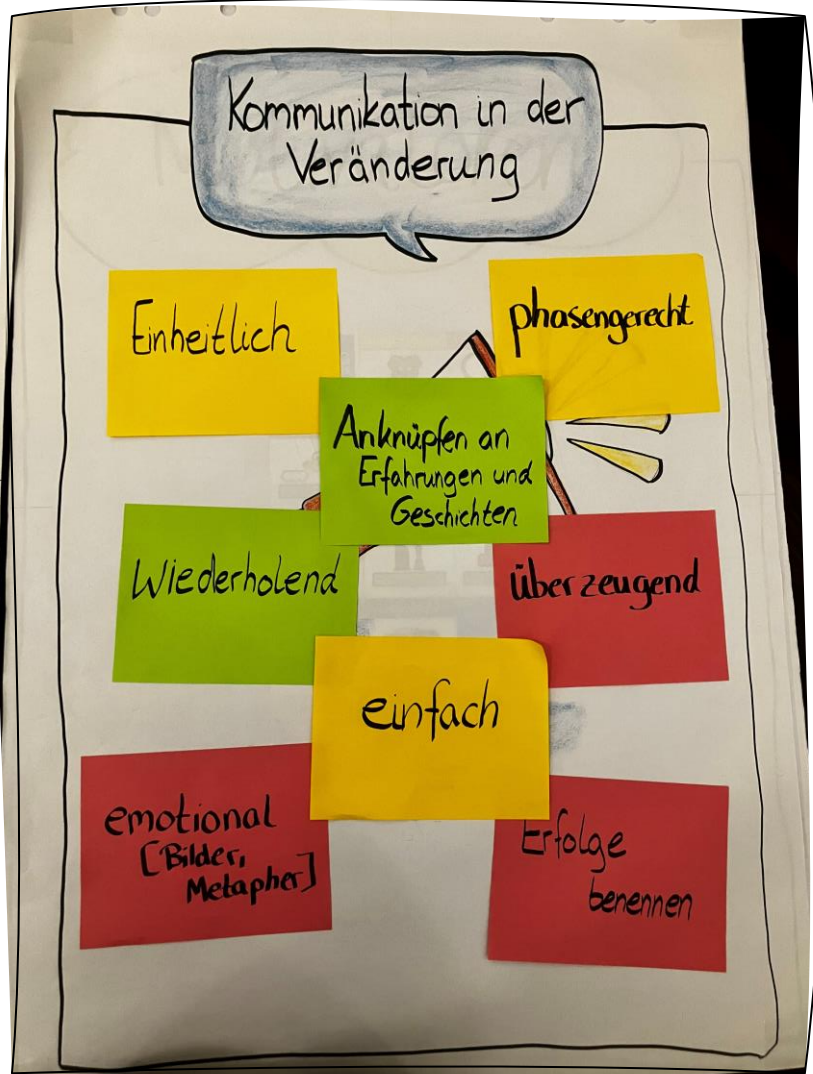 Kommunikation in der
Veränderung
Einheitlich
phasengerecht
Anknüpfen an
Erfahrungen und
Geschichten
Wiederholend
überzeugend
einfach
emotional
[Bilder,
Metapher]
Erfolge
benennen